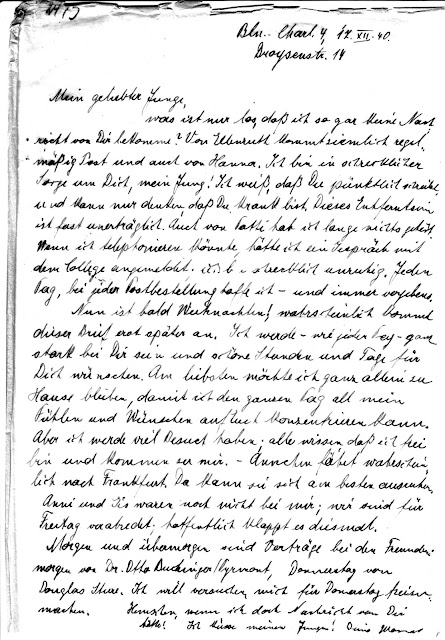 Bln.- Charl. 4, 17. XII. 40.
Droysenstr. 14
Mein geliebter Junge,
was ist nur los, daß ich so gar keine Nach
richt von Dir bekomme? Von Ellenruth kommt ziemlich regel-
mäßig Post und auch von Hanna. Ich bin in schrecklicher
Sorge um Dich, mein Jung! Ich weiß, daß Du pünktlich schreibst,
und kann nur denken, daß Du krank bist. Dieses Entferntsein
ist fast unerträglich. Auch von Vatti hab ich lange nichts gehört.
Wenn ich telephonieren könnte, hätte ich ein Gespräch mit
dem College angemeldet. Ich bin schrecklich unruhig. Jeden
Tag, bei jeder Postbestellung hoffe ich - und immer vergebens.
Nun ist bald Weihnachten! wahrscheinlich kommt
dieser Brief erst später an. Ich werde - wie jeden Tag - ganz
stark bei Dir sein und schöne Stunden und Tage für
Dich wünschen. Am liebsten möchte ich ganz allein zu
Hause bleiben, damit ich den ganzen Tag all mein
Fühlen und Wünschen auf Euch konzentrieren kann.
Aber ich werde viel Besuch haben; alle wissen daß ich frei
bin und kommen zu mir. - Annchen fährt wahrschein-
lich nach Frankfurt. Da kann sie sich am besten ausruhen.
Anni und Lis waren noch nicht bei mir; wir sind für
Freitag verabredet. hoffentlich klappt es diesmal.
Morgen und übermorgen sind Vorträge bei den Freunden:
morgen von Dr. Otto Buchinger/Pyrmont, Donnerstag von
Douglas Ich will versuchen, mich für Donnerstag freizu-
machen. wenn ich doch Nachricht von Dir
hätte! Ich küsse meinen Jungen! Deine Mama